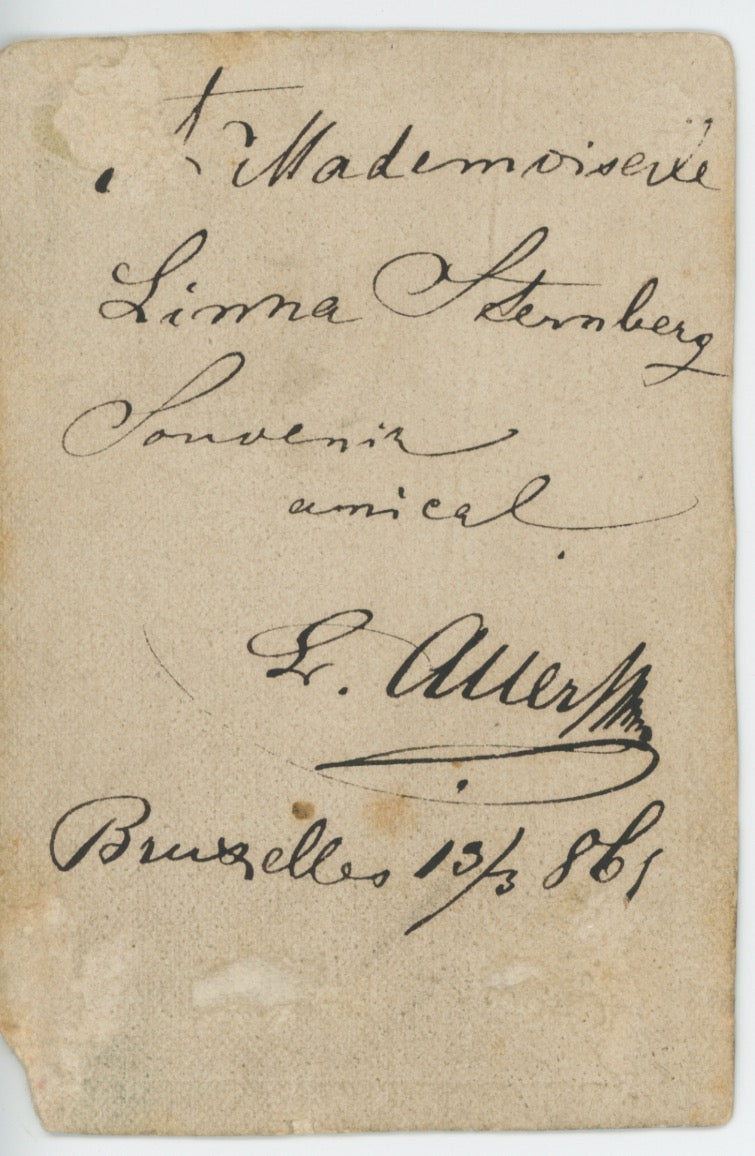 A Mademoiselle
Linna Sternberg
Souvenir
amical.
L. Auer
Bruxelles 13/3 861